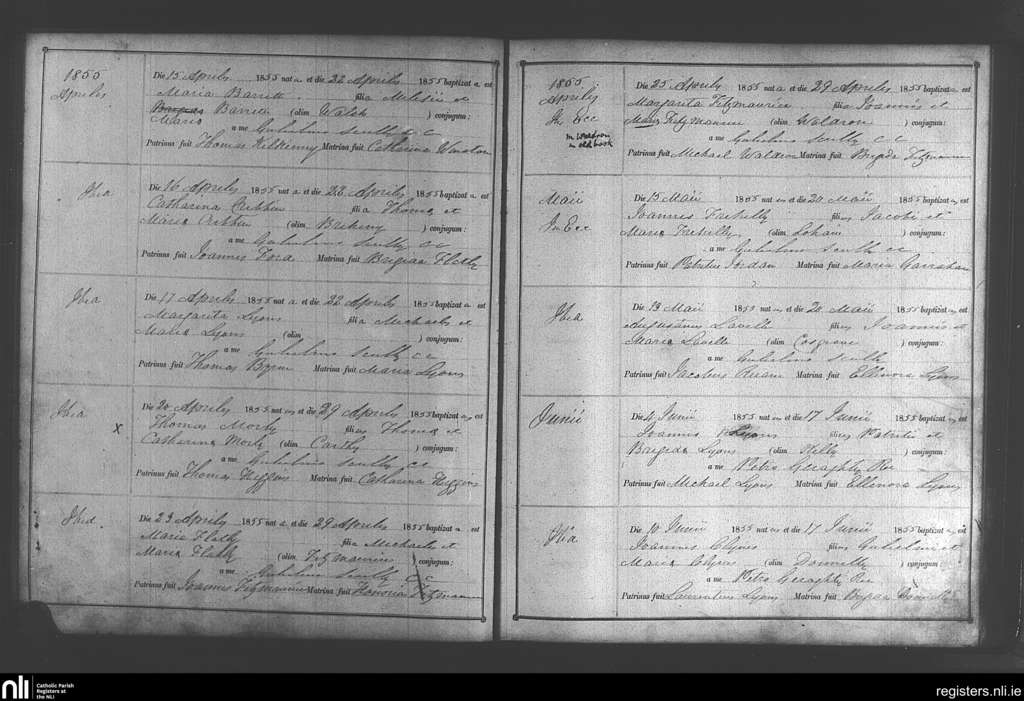 1855
Aprilis
Die 15 Aprilis 1855 nat a et die 22 Aprilis 1855 baptizat a est
Maria Barrett filia Milesii et
Brigida Barrett (olim Walsh ) conjugum:
Maria
a me Gulielmo Scully c c
Patrinus fuit Thomas Kilkenny Matrina fuit Catharina Winston
Ibid
Die 16 Aprilis 1855 nat a et die 22 Aprilis 1855 baptizat a est
Catharina Cribbin filia Thoma et
Maria Cribbin (olim ) conjugum:
a me Gulielmo Scully cc
Patrinus fuit Joannes Ford Matrina fuit Brigida
Ibid
Die 17 Aprilis 1855 nat a et die 22 Aprilis 1855 baptizat a est
Margarita Lyons filia Michaelis et
Maria Lyons (olim ) conjugum:
a me Gulielmo Scully cc
Patrinus fuit Thomas Byrne Matrina fuit Maria Lyons
Ibid
X
Die 20 Aprilis 1855 nat us et die 29 Aprilis 1855 baptizat us est
Thomas Morly filius Thoma et
Catharina Morly (olim Carthy ) conjugum:
a me Gulielmo Scully cc
Patrinus fuit Thomas Higgins Matrina fuit Catharina Higgins
Ibid.
Die 23 Aprilis 1855 nat a et die 29 Aprilis 1855 baptizat a est
Maria Flatly filia Michaelis et
Maria Flatly (olim Fitzmaurice ) conjugum:
a me Gulielmo Scully cc
Patrinus fuit Joannes Fitzmaurice Matrina fuit Honoria Fitzmaurice
1855
Aprilis
In Ecc
in Waldron
in old book
Die 25 Aprilis 1855 nat a et die 29 Aprilis 1855 baptizat a est
Margarita Fitzmaurice filia Joannis et
Maria Fitzmaurice (olim Waldron ) conjugum:
a me Gulielmo Scully cc
Patrinus fuit Michael Waldron Matrina fuit Brigida Fitzmaurice
Maii
In Ecc
Die 15 Maii 1855 nat us et die 20 Maii 1855 baptizat us est
Joannes filius Jacobi et
Maria (olim Lohan ) conjugum:
a me Gulielmo Scully cc
Patrinus fuit Jordan Matrina fuit Maria
Ibid
Die 13 Maii 1855 nat us et die 20 Maii 1855 baptizat us est
Augustinus Lavelle filius Joannis et
Maria Lavelle (olim Cosgrove ) conjugum:
a me Gulielmo Scully
Patrinus fuit Jacobus Ruane Matrina fuit Ellenora Lyons
Junii
Die 4 Junii 1855 nat us et die 17 Junii 1855 baptizat us est
Joannes Lyons filius Patritii et
Brigida Lyons (olim Kelly ) conjugum:
a me Petro Geraghty
Patrinus fuit Michael Lyons Matrina fuit Ellenora Lyons
Ibid
Die 10 Junii 1855 nat us et die 17 Junii 1855 baptizat us est
Joannes Clynes filius Gulielmi et
Maria Clynes (olim Donnelly ) conjugum:
a me Petro Geraghty
Patrinus fuit Laurentius Lyons Matrina fuit Brigida Donnelly
nli Catholic Parish
Registers at
the NLI
registers.nli.ie